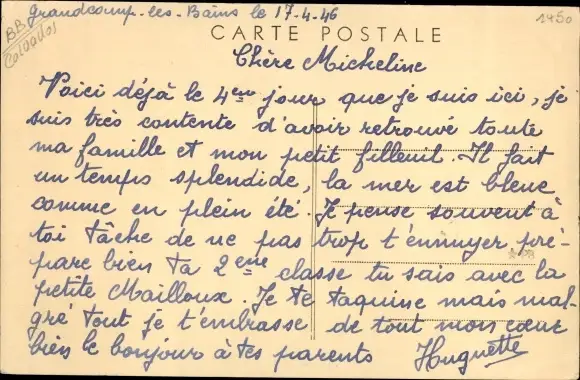 Grandcamp-les-Bains le 17-4-46
1450
BB
Calvados
CARTE POSTALE
Chère Micheline
Voici déjà le 4em jour que je suis ici, je
suis très contente d'avoir retrouvé toute
ma famille et mon petit filleuil. Il fait
un temps splendide, la mer est bleue
comme en plein été. Je pense souvent à
toi tâche de ne pas trop t'ennuyer pré-
pare bien ta 2eme classe tu sais avec la
petite Mailloux. Je te taquine mais mal-
gré tout je t'embrasse de tout mon cœur
bien le bonjour à tes parents Huguette